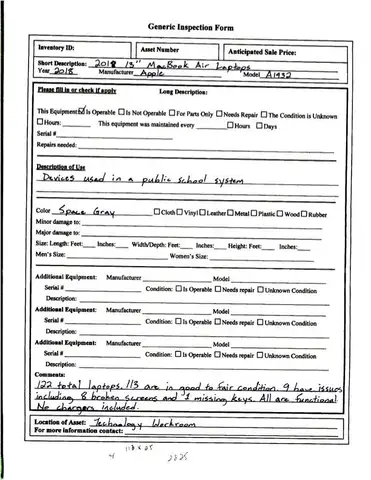 Generic Inspection Form
Inventory ID: Asset Number Anticipated Sale Price:
Short Description: 2018 13" MacBook Air Laptops
Year 2018 Manufacturer Apple Model A1932
Please fill in or check if apply Long Description:
This Equipment: ☑ Is Operable ☐ Is Not Operable ☐ For Parts Only ☐ Needs Repair ☐ The Condition is Unknown
☐ Hours: This equipment was maintained every ☐ Hours ☐ Days
Serial #
Repairs needed:
Description of Use
Devices used in a public school system
Color Space Gray ☐ Cloth ☐ Vinyl ☐ Leather ☐ Metal ☐ Plastic ☐ Wood ☐ Rubber
Minor damage to:
Major damage to:
Size: Length: Feet: Inches: Width/Depth: Feet: Inches: Height: Feet: Inches:
Men's Size: Women's Size:
Additional Equipment: Manufacturer Model
Serial # Condition: ☐ Is Operable ☐ Needs repair ☐ Unknown Condition
Description:
Additional Equipment: Manufacturer Model
Serial # Condition: ☐ Is Operable ☐ Needs repair ☐ Unknown Condition
Description:
Additional Equipment: Manufacturer Model
Serial # Condition: ☐ Is Operable ☐ Needs repair ☐ Unknown Condition
Description:
Comments:
122 total laptops. 113 are in good to fair condition. 9 have issues
including 8 broken screens and 1 missing keys. All are functional
No chargers included.
Location of Asset: Technology Workroom
For more information contact:
113 x 25
2825